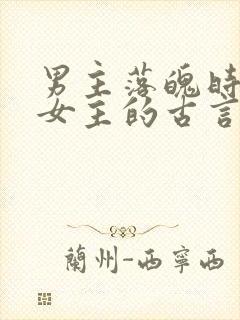 男主落魄时
女主的古言
蘭州-西寧西